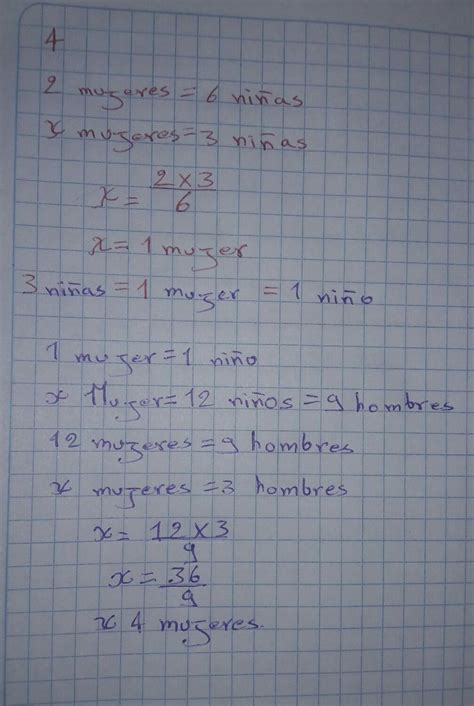 4
2 muzeres = 6 niñas
x muzeres = 3 niñas
x = 2 x 3 / 6
x = 1 muzer
3 niñas = 1 muzer = 1 niño
1 muzer = 1 niño
x Muzer = 12 niños = 9 hombres
12 muzeres = 9 hombres
x muzeres = 3 hombres
x = 12 x 3 / 9
x = 36 / 9
x 4 muzeres.